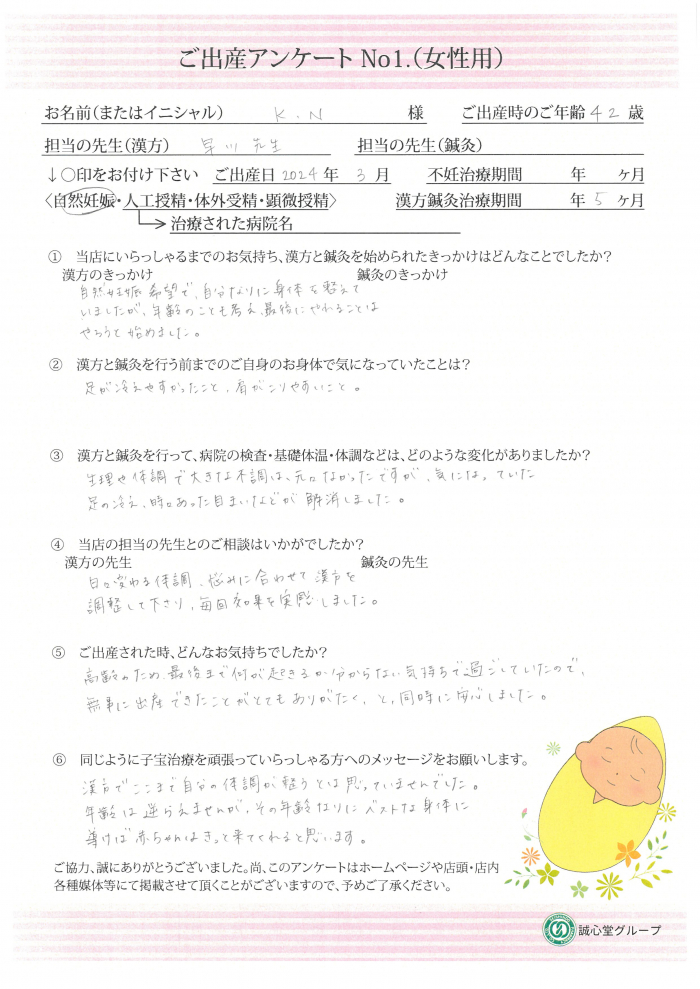 ご出産アンケート No1.(女性用)
お名前(またはイニシャル) K.N 様 ご出産時のご年齢 42 歳
担当の先生(漢方) 早川先生 担当の先生(鍼灸)
↓○印をお付け下さい ご出産日 2024 年 3 月 不妊治療期間 年 ヶ月
〈自然妊娠・人工授精・体外受精・顕微授精〉 漢方鍼灸治療期間 年 5 ヶ月
治療された病院名
① 当店にいらっしゃるまでのお気持ち、漢方と鍼灸を始められたきっかけはどんなことでしたか?
漢方のきっかけ 鍼灸のきっかけ
自然妊娠希望で、自分なりに身体を整えて
いましたが、年齢のことも考え、最後にやれることは
やろうと始めました。
② 漢方と鍼灸を行う前までのご自身のお身体で気になっていたことは?
足が冷えやすかったこと、肩がこりやすいこと。
③ 漢方と鍼灸を行って、病院の検査・基礎体温・体調などは、どのような変化がありましたか?
生理や体調で大きな不調は、元々なかったですが、気になっていた
足の冷え、時々あった目まいなどが解消しました。
④ 当店の担当の先生とのご相談はいかがでしたか?
漢方の先生 鍼灸の先生
日々変わる体調、悩みに合わせて漢方を
調整して下さり、毎回効果を実感しました。
⑤ ご出産された時、どんなお気持ちでしたか?
高齢のため、最後まで何が起きるか分からない気持ちで過ごしていたので、
無事に出産できたことがとてもありがたく、と、同時に安心しました。
⑥ 同じように子宝治療を頑張っていらっしゃる方へのメッセージをお願いします。
漢方でここまで自分の体調が整うとは思っていませんでした。
年齢には逆らえませんが、その年齢なりにベストな身体に
導けば赤ちゃんはきっと来てくれると思います。
ご協力、誠にありがとうございました。尚、このアンケートはホームページや店頭・店内
各種媒体等にて掲載させて頂くことがございますので、予めご了承ください。
誠心堂グループ